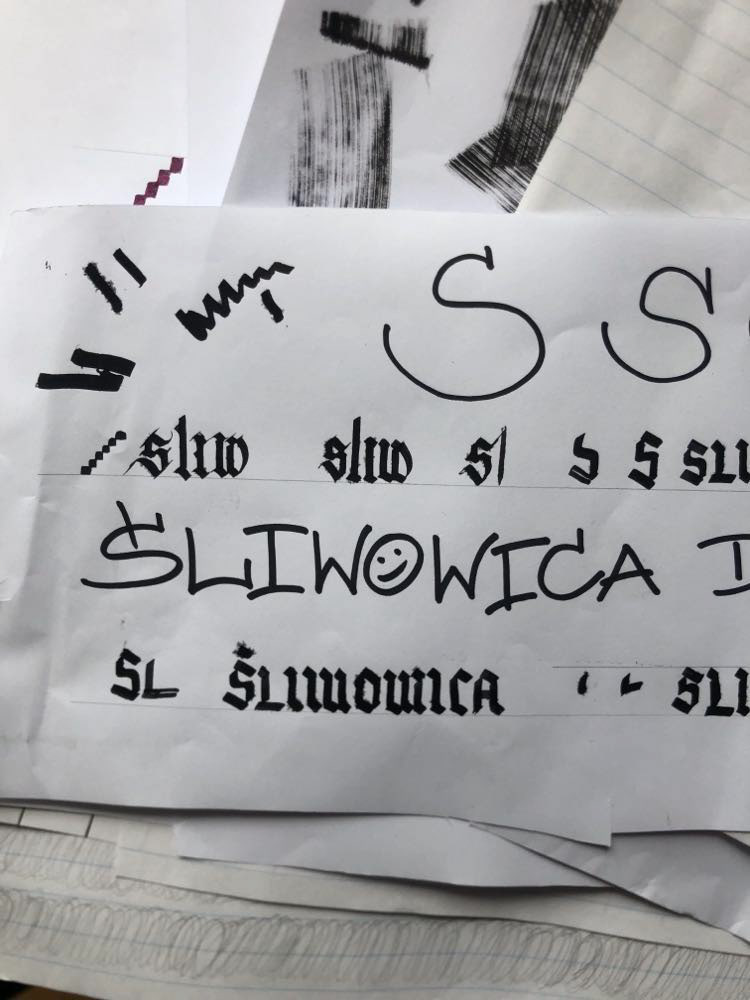 S S
sliw sliw sl S S SLI
ŚLIWOWICA D
SL ŚLIWOWICA SLI